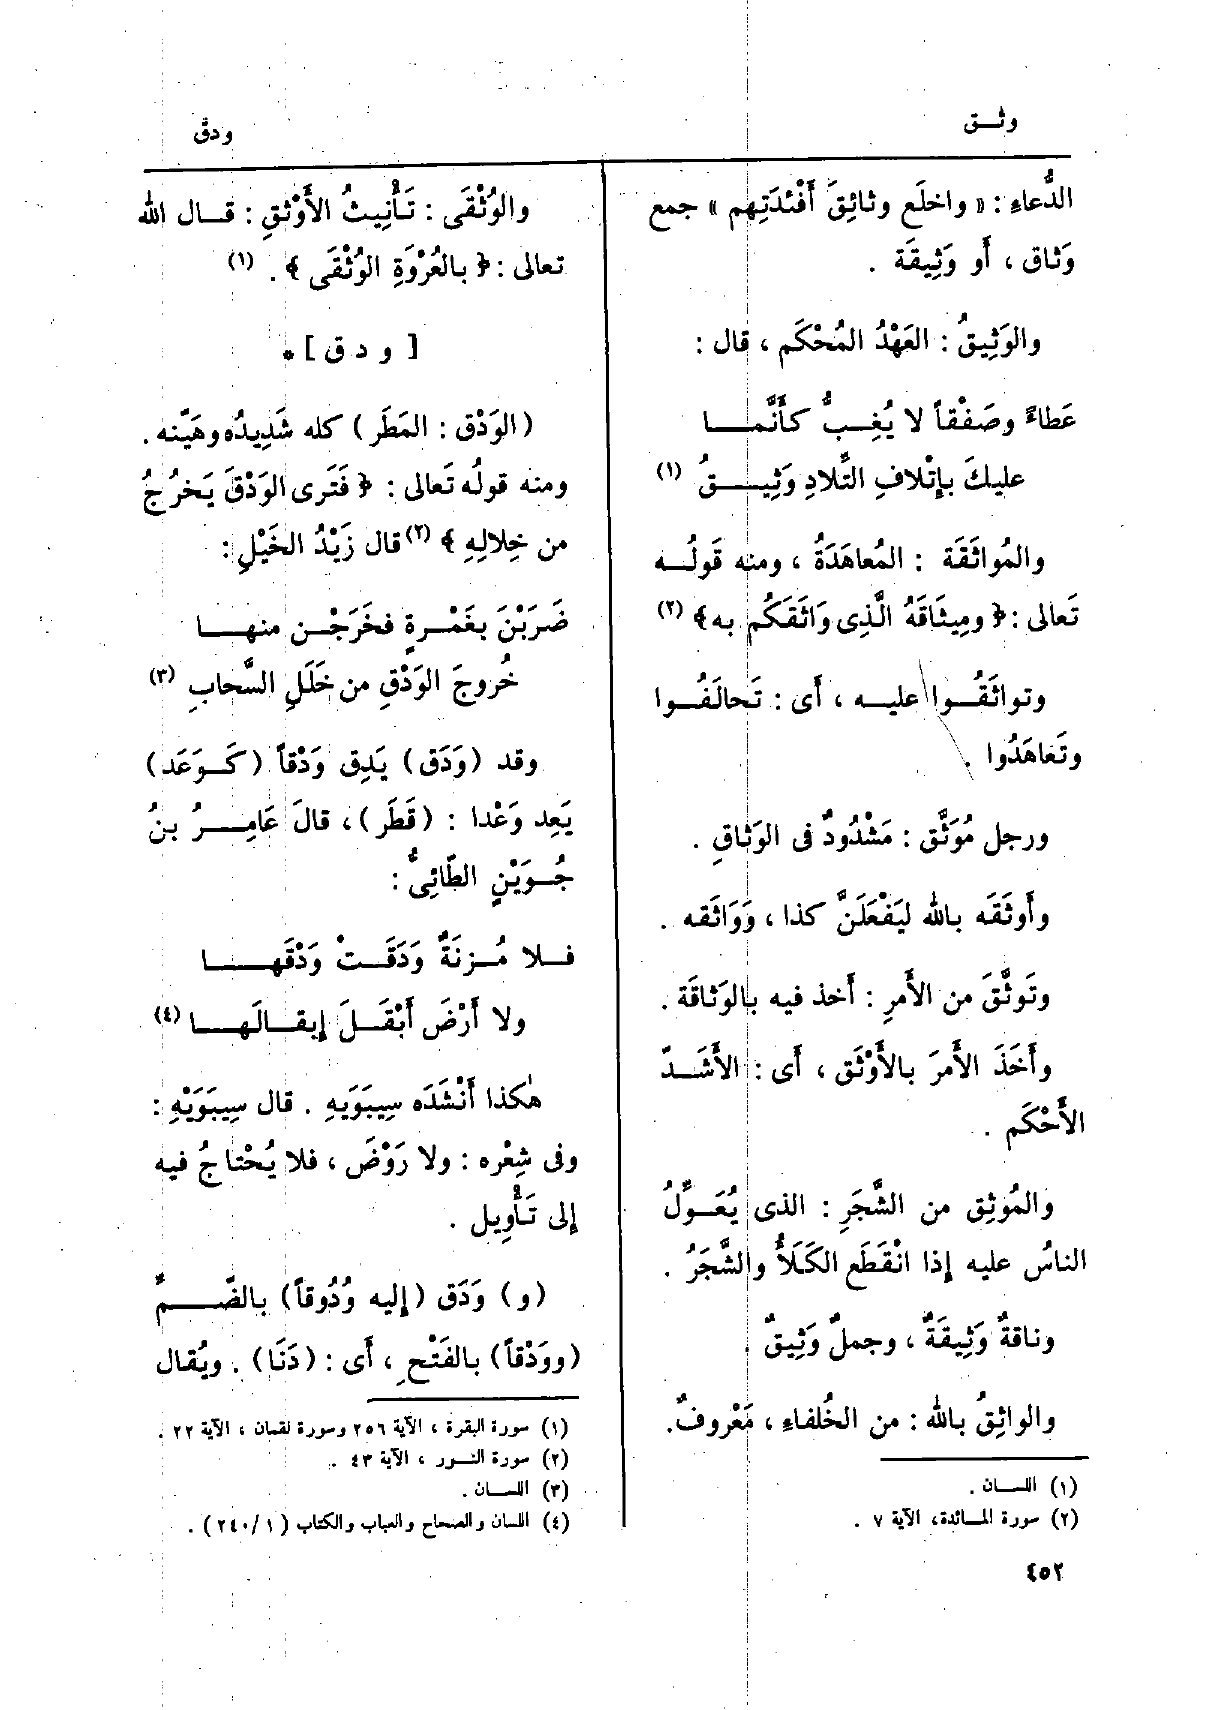 وثــق
ودق
الدُّعاءِ : « واخلَع وثائِقَ أَفْئدَتِهم » جمع
وَثاق ، أَو وَثِيقَة .
والوَثِيقُ : العَهْدُ المُحْكَم ، قال :
عَطاءً وصَفْقاً لا يُغِــبُّ كأَنَّمــا
عليكَ بإِتْلافِ التِّلادِ وَثِيــقُ (١)
والمُواثَقَة : المُعاهَدَةُ ، ومنه قَولُــه
تَعالى : ﴿ ومِيثَاقَهُ الَّذِى وَاثَقَكُم به ﴾ (٢)
وتواثَقُــوا عليــه ، أَى : تَحالَفُــوا
وتَعاهَدُوا .
ورجل مُوَثَّق : مَشْدُودٌ فى الوَثاقِ .
وأَوثَقَه بالله ليَفْعَلَنَّ كذا ، وَوَاثَقه .
وتَوثَّقَ من الأَمرِ : أَخذ فيه بالوَثاقَة .
وأَخَذَ الأَمرَ بالأَوْثَق ، أَى : الأَشَــدّ
الأَحْكَم .
والمُوثِق من الشَّجَرِ : الذى يُعَــوِّلُ
الناسُ عليه إِذا انْقَطَع الكَلَأُ والشَّجَرُ .
وناقةٌ وَثِيقَةٌ ، وجملٌ وَثِيقٌ .
والواثِقُ بالله : من الخُلفاءِ ، مَعْروفٌ.
(١) اللســان .
(٢) سورة المــائدة، الآية ٧ .
والوُثْقَى : تَأْنِيثُ الأَوْثقِ : قــال الله
تعالى : ﴿ بالعُرْوَةِ الوُثْقَى ﴾ . (١)
[ و د ق ] *
(الوَدْق : المَطَر) كله شَدِيدُه وهَيِّنه .
ومنه قولُه تَعالى : ﴿ فَتَرى الوَدْقَ يَخرُجُ
من خِلالِهِ ﴾ (٢) قال زَيْدُ الخَيْلِ :
ضَرَبْنَ بغَمْــرةٍ فخَرَجْــن منهــا
خُروجَ الوَدْقِ من خَلَلِ السَّحابِ (٣)
وقد (وَدَق) يَدِق وَدْقاً (كَــوَعَد)
يَعِد وَعْدا : (قَطَر) ، قالَ عَامِــرُ بنُ
جُــوَيْنٍ الطّائِىُّ :
فــلا مُــزنَةٌ وَدَقَــتْ وَدْقَهــا
ولا أَرْضَ أَبْقَــلَ إِبقــالَهــا (٤)
هٰكذا أَنْشَدَه سِيبَوَيهِ . قال سِيبَوَيْهِ :
وفى شِعْره : ولا رَوْضَ ، فلا يُحْتاجُ فيه
إِلى تَأْوِيل .
(و) وَدَق (إِليه وُدُوقاً) بالضَّــمِّ
(ووَدْقاً) بالفَتْح ، أَى : (دَنَا) . ويُقال
(١) سورة البقرة ، الآية ٢٥٦ وسورة لقمان ، الآية ٢٢ .
(٢) سورة النــور ، الآية ٤٣ .
(٣) اللســان .
(٤) اللسان والصحاح والعباب والكتاب ( ١/ ٢٤٠ ) .
٤٥٢